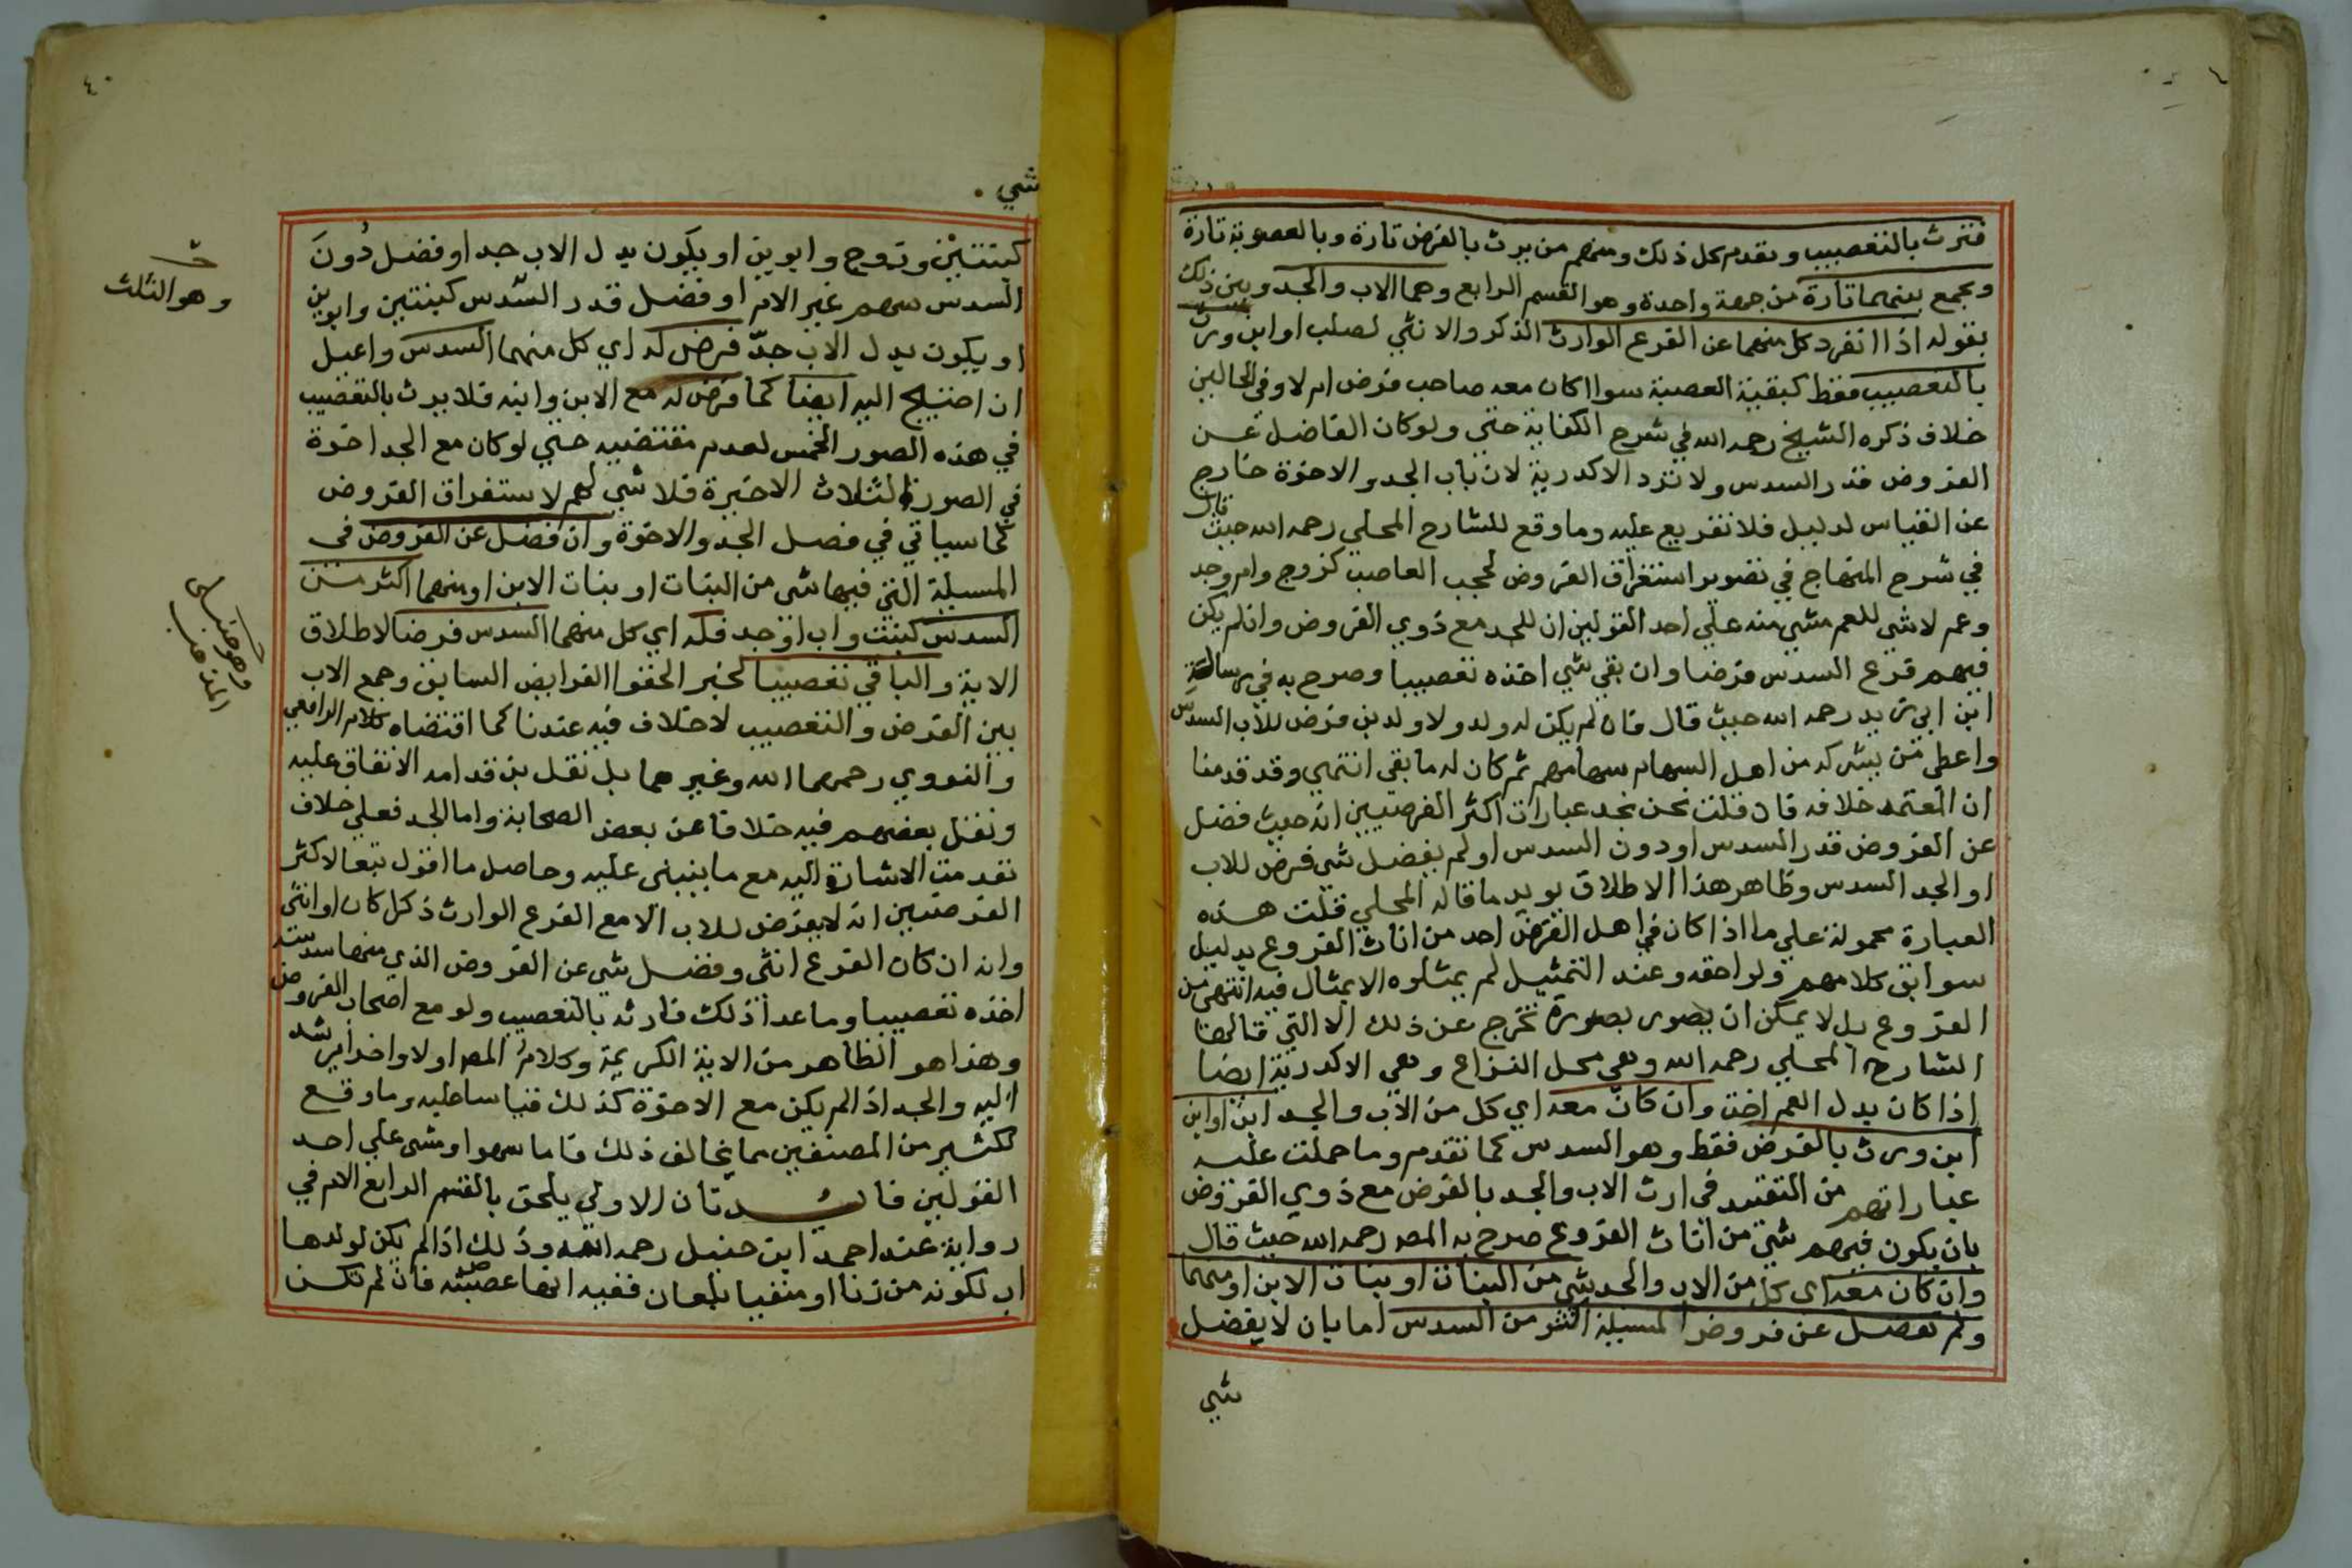 فترث بالتعصيب وتقدم كل ذلك ومنهم من يرث بالفرض تارة وبالعصوبة تارة
ويجمع بينهما تارة من جهة واحدة وهو القسم الرابع وهما الاب والجد وبين ذلك
بقوله اذا انفرد كل منهما عن الفرع الوارث الذكر والانثي لصلب او ابن ورث
بالتعصيب فقط كبقية العصبة سوا اكان معه صاحب فرض ام لا وفي الحالين
خلاف ذكره الشيخ رحمه الله في شرح الكفاية حتي ولو كان الفاضل عن
الفروض قدر السدس ولا ترد الاكدرية لان باب الجد والاخوة خارج
عن القياس لدليل فلا تفريع عليه وما وقع للشارح المحلي رحمه الله حيث قال
في شرح المنهاج في تصوير استغراق الفروض لحجب العاصب كزوج وام وجد
وعم لا شي للعم مشي منه علي احد القولين ان للجد مع ذوي الفروض وان لم يكن
فيهم فرع السدس فرضا وان بقي شي اخذه تعصيبا وصرح به في رسالة
ابن ابي زيد رحمه الله حيث قال فان لم يكن له ولد ولا ولد ابن فرض للاب السدس
واعطي من يشركه من اهل السهام سهامهم ثم كان له ما بقي انتهي وقد قدمنا
ان المعتمد خلافه فان قلت نحن نجد عبارات اكثر الفرضيين انه حيث فضل
عن الفروض قدر السدس او دون السدس او لم يفضل شي فرض للاب
او الجد السدس وظاهر هذا الاطلاق يويد ما قاله المحلي قلت هذه
العبارة محمولة علي ما اذا كان في اهل الفرض احد من اناث الفروع بدليل
سوابق كلامهم ولواحقه وعند التمثيل لم يمثلوه الا بمثال فيه انثي من
الفروع بل لا يمكن ان يصور بصورة تخرج عن ذلك الا التي قالها
الشارح المحلي رحمه الله وهي محل النزاع وهي الاكدرية ايضا
اذا كان بدل العم اخت وان كان معه اي كل من الاب والجد ابن او ابن
ابن ورث بالفرض فقط وهو السدس كما تقدم وما حملت عليه
عباراتهم من التقييد في ارث الاب والجد بالفرض مع ذوي الفروض
بان يكون فيهم شي من اناث الفروع صرح به المص رحمه الله حيث قال
وان كان معه اي كل من الاب والجد شي من البنات او بنات الابن او منهما
ولم يفضل عن فروض المسيلة اكثر من السدس اما بان لا يفضل
شي
٤٠
شي
كبنتين وزوج وابوين او يكون بدل الاب جد او فضل دون
السدس سهم غير الام او فضل قدر السدس كبنتين وابوين
او يكون بدل الاب جد فرض له اي كل منهما السدس واعيل
ان احتيج اليه ايضا كما فرض له مع الابن وابنه فلا يرث بالتعصيب
في هذه الصور الخمس لعدم مقتضيه حتي لو كان مع الجد اخوة
في الصور الثلاث الاخيرة فلا شي لهم لاستغراق الفروض
كما سياتي في فصل الجد والاخوة وان فضل عن الفروض في
المسيلة التي فيها شي من البنات او بنات الابن او منهما اكثر من
السدس كبنت واب او جد فله اي كل منهما السدس فرضا لاطلاق
الاية والباقي تعصيبا لخبر الحقوا الفرايض السابق وجمع الاب
بين الفرض والتعصيب لا خلاف فيه عندنا كما اقتضاه كلام الرافعي
والنووي رحمهما الله وغيرهما بل نقل بن قدامه الاتفاق عليه
ونقل بعضهم فيه خلافا عن بعض الصحابة واما الجد فعلي خلاف
تقدمت الاشارة اليه مع ما ينبني عليه وحاصل ما اقول تبعا لاكثر
الفرضيين انه لا يفرض للاب الا مع الفرع الوارث ذكر كان او انثي
وانه ان كان الفرع انثي وفضل شي عن الفروض الذي منها سدسه
اخذه تعصيبا وما عدا ذلك فارثه بالتعصيب ولو مع اصحاب الفروض
وهذا هو الظاهر من الاية الكريمة وكلام المص اولا واخرا يرشد
اليه والجد اذا لم يكن مع الاخوة كذلك قياسا عليه وما وقع
لكثير من المصنفين مما يخالف ذلك فاما سهوا ومشي علي احد
القولين فائدتان الاولي يلحق بالقسم الرابع الام في
رواية عند احمد ابن حنبل رحمه الله وذلك اذا لم يكن لولدها
اب لكونه من زنا او منفيا بلعان ففيه انها عصبته فان لم تكن
وهو الثلث